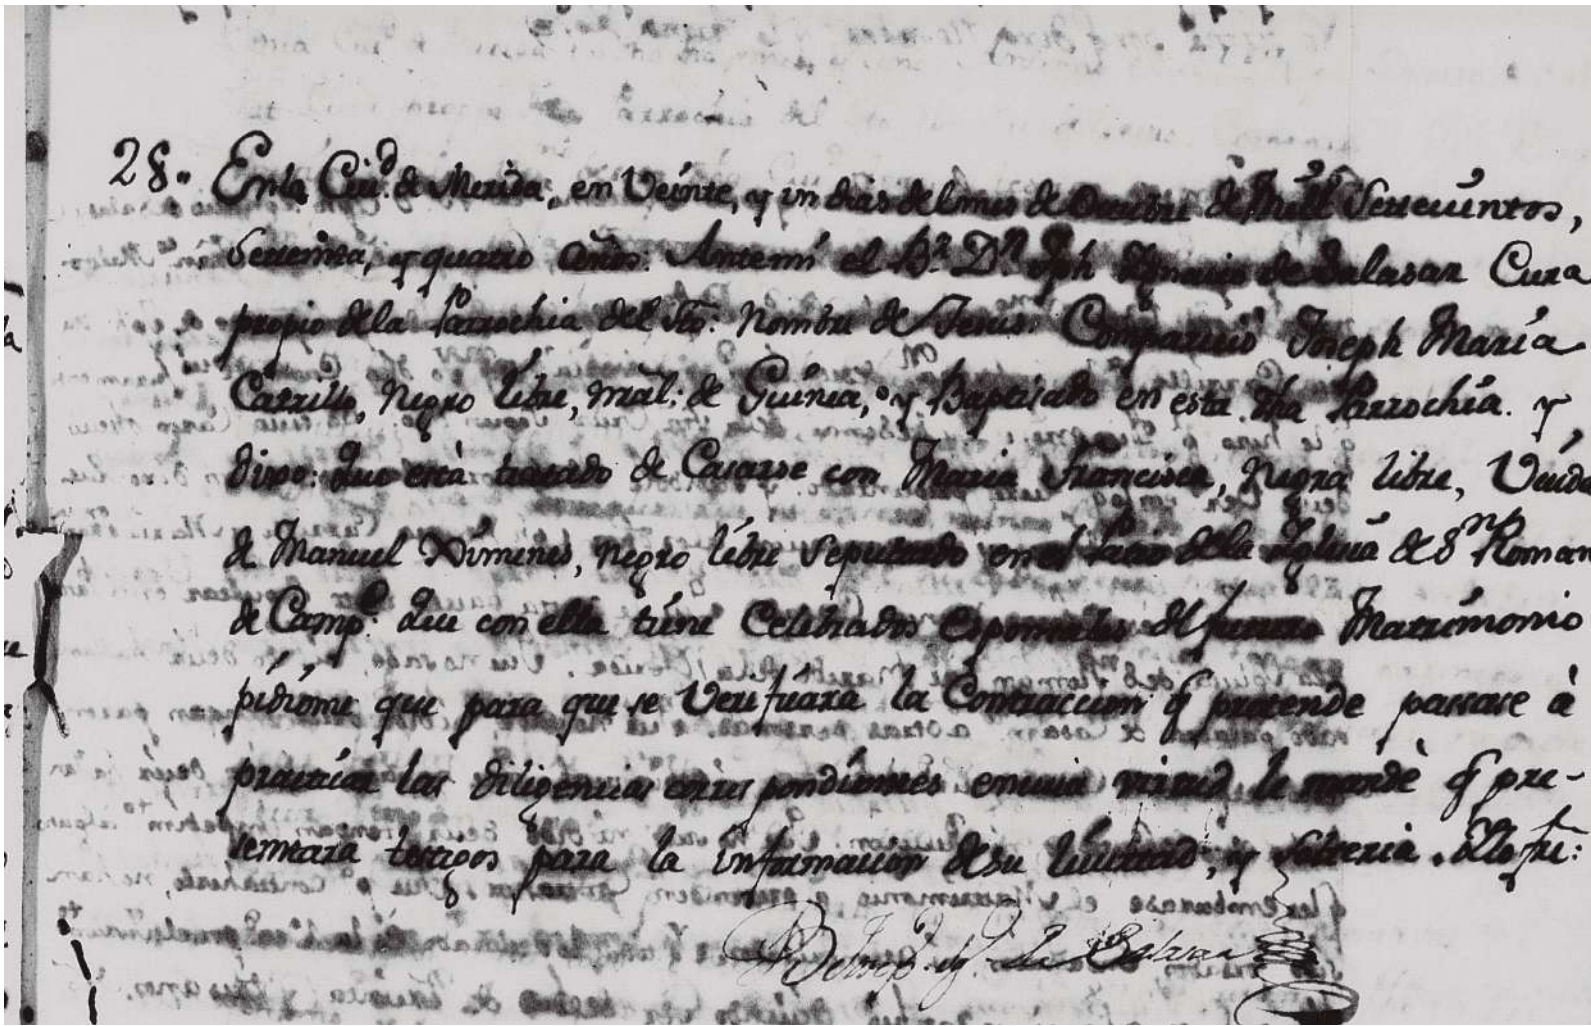 28. En la Ciu.d de Merida, en Veinte, y un dias del mes de Octubre de Mill Setecientos,
Setenta, y quatro años. Antemi el B.r D.n Jph Ignacio de Salasar Cura
propio dela Parrochia del Sto: Nombre de Jesus: Comparecio Joseph María
Carrillo, Negro libre, nral: de Guinea, y Baptisado en esta dha Parrochia. y
dixo: Que está tratado de Casarse con Maria Francisca, Negra libre, Viuda
de Manuel Ximenes, negro libre sepultado en el Patio dela Iglecia de Sn Roman
de Camp.e que con ella tiene Celebrados esponsales de futuro Matrimonio
pidiome que para que se Verificara la Contraccion q pretende passase à
practicar las diligencias correspondientes encuia virtud le mandè q pre-
sentara testigos para la informacion desu libertad, y solteria. Doÿ fe:
B.r Josep. Ig.o de Salasar